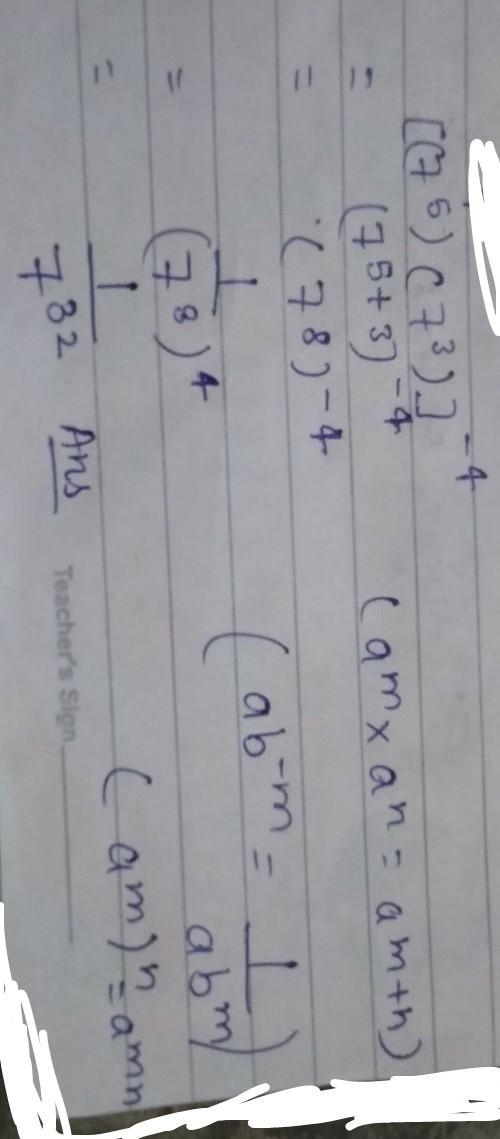 [(7⁵) (7³)]⁻⁴
= (7⁵⁺³)⁻⁴ (aᵐ × aⁿ = aᵐ⁺ⁿ)
= (7⁸)⁻⁴
= 1/(7⁸)⁴ (ab⁻ᵐ = 1/abᵐ)
= 1/7³² Ans (aᵐ)ⁿ = aᵐⁿ
Teacher's Sign